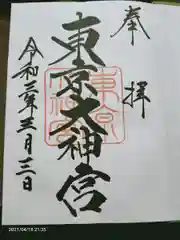 奉拝
東京大神宮
令和三年三月三日
2021/04/18 21:25